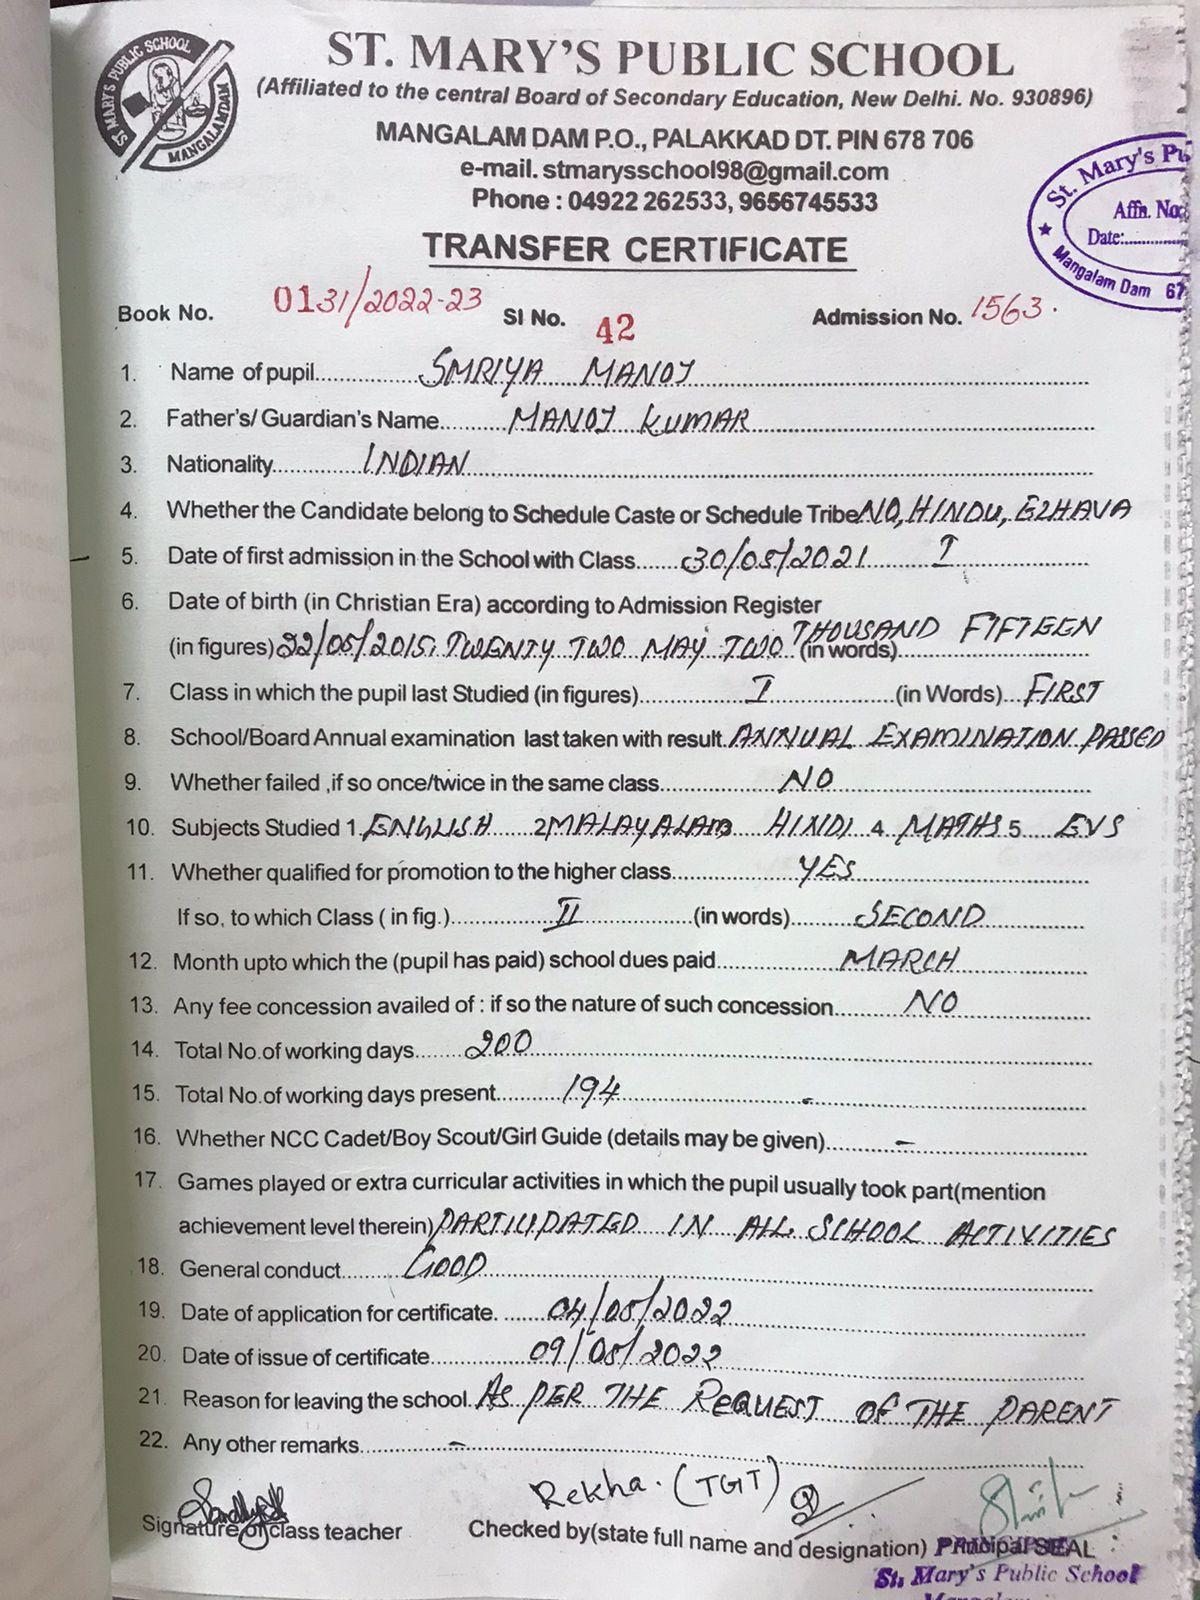 ST. MARY'S PUBLIC SCHOOL
MANGALAMDAM
ST. MARY'S PUBLIC SCHOOL
(Affiliated to the central Board of Secondary Education, New Delhi. No. 930896)
MANGALAM DAM P.O., PALAKKAD DT. PIN 678 706
e-mail. stmarysschool98@gmail.com
Phone : 04922 262533, 9656745533
St. Mary's Pu
Affn. No:
Date:
Mangalam Dam 67
TRANSFER CERTIFICATE
Book No. 0131/2022-23 SI No. 42 Admission No. 1563.
1. Name of pupil SMRIYA MANOJ
2. Father's/ Guardian's Name MANOJ KUMAR
3. Nationality INDIAN
4. Whether the Candidate belong to Schedule Caste or Schedule Tribe NO, HINDU, EZHAVA
5. Date of first admission in the School with Class 30/05/2021 I
6. Date of birth (in Christian Era) according to Admission Register
(in figures) 22/05/2015, TWENTY TWO MAY TWO THOUSAND FIFTEEN (in words)
7. Class in which the pupil last Studied (in figures) I (in Words) FIRST
8. School/Board Annual examination last taken with result. ANNUAL EXAMINATION PASSED
9. Whether failed ,if so once/twice in the same class NO
10. Subjects Studied 1. ENGLISH 2 MALAYALAM 3 HINDI 4 MATHS 5 EVS
11. Whether qualified for promotion to the higher class YES
If so, to which Class ( in fig.) II (in words) SECOND
12. Month upto which the (pupil has paid) school dues paid MARCH
13. Any fee concession availed of : if so the nature of such concession NO
14. Total No.of working days 200
15. Total No.of working days present 194
16. Whether NCC Cadet/Boy Scout/Girl Guide (details may be given) –
17. Games played or extra curricular activities in which the pupil usually took part(mention
achievement level therein) PARTICIPATED IN ALL SCHOOL ACTIVITIES
18. General conduct GOOD
19. Date of application for certificate. 04/05/2022
20. Date of issue of certificate 09/05/2022
21. Reason for leaving the school. AS PER THE REQUEST OF THE PARENT
22. Any other remarks –
Rekha. (TGT)
Signature of class teacher Checked by(state full name and designation) Principal SEAL
PRINCIPAL
St. Mary's Public School